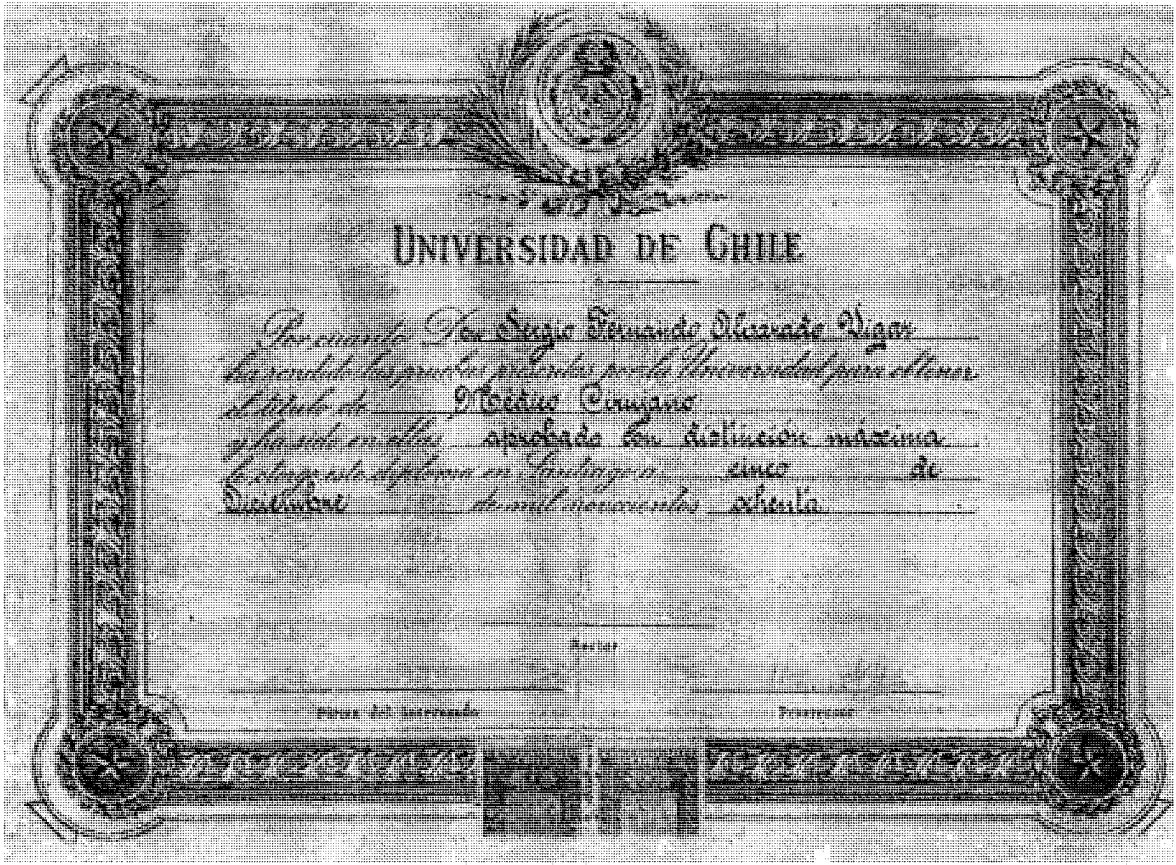 UNIVERSIDAD DE CHILE
Por cuanto Don Sergio Fernando Alvarado Vigar
ha rendido las pruebas prefijadas por la Universidad para obtener
el título de Médico Cirujano
y ha sido en ellas aprobado con distinción máxima
le otorga este diploma en Santiago a cinco de
Diciembre de mil novecientos ochenta
Rector
Firma del interesado
Prorrector